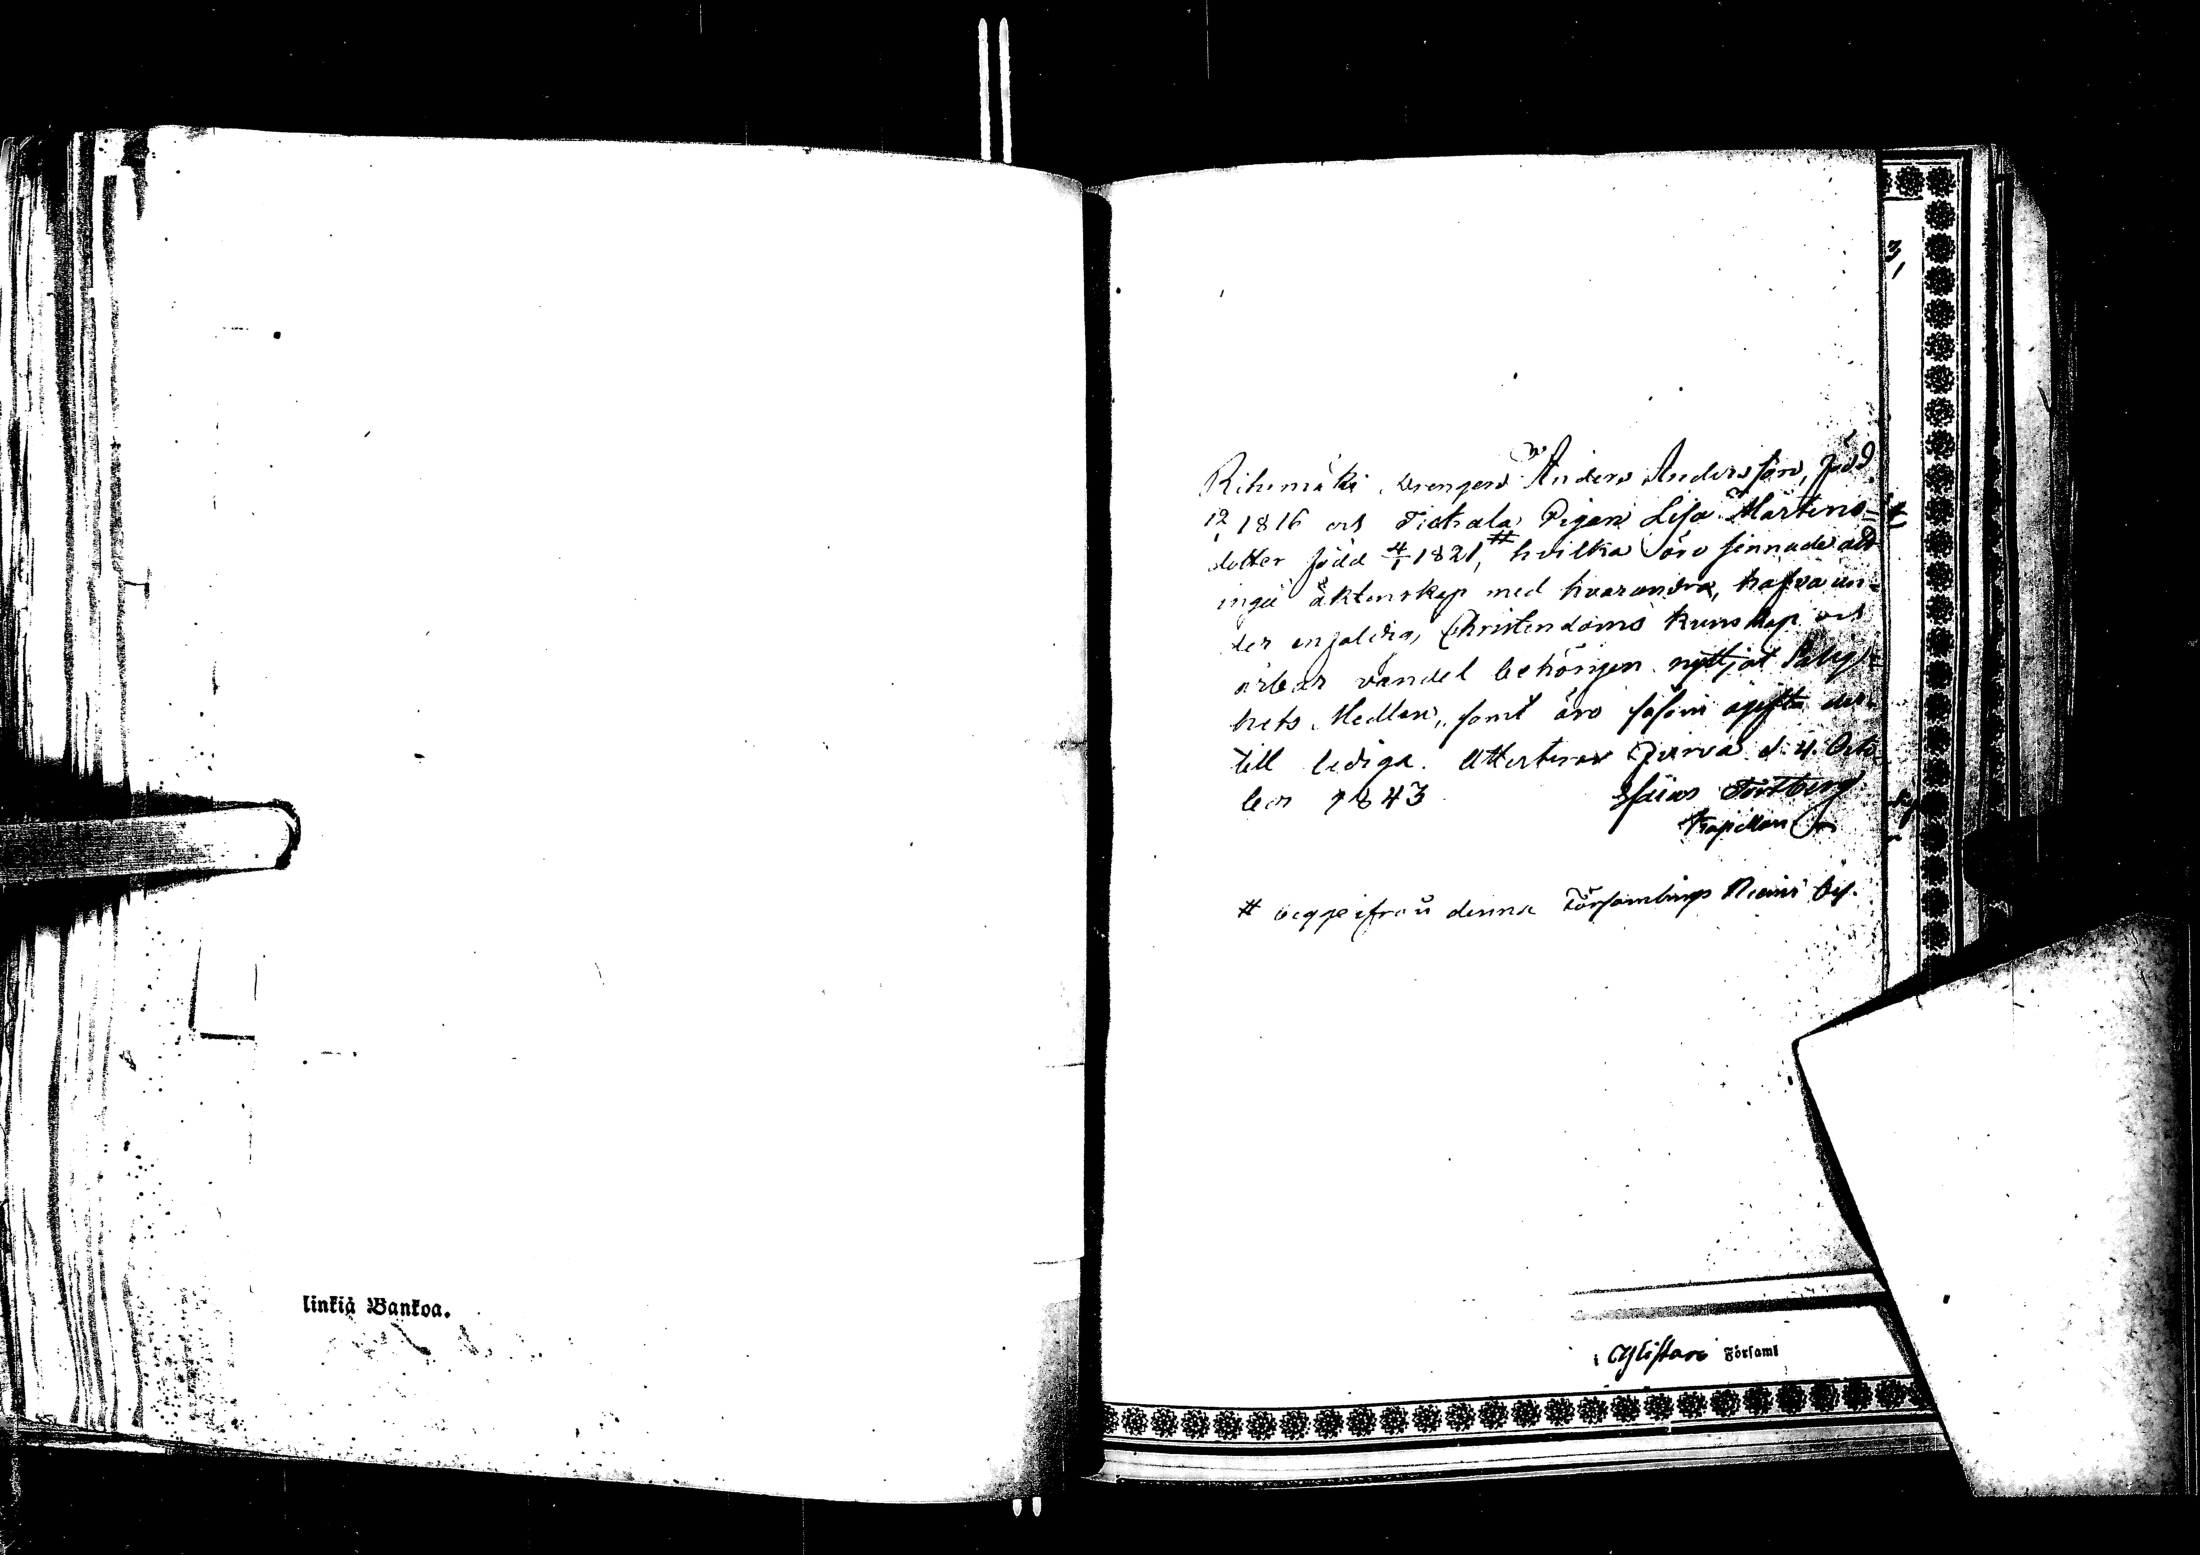 linkiä Bankoa.
3,
Rihimäki Drengen Anders Andersson, född
12 1816 och Tickala Pigan Lisa Mårtens=
dotter född 4/1 1821,# hvilka äro sinnade att
ingå äktenskap med hvarandra, hafva un-
der enfaldig Christendoms kunskap och
ärbar vandel behörigen nyttjat Salig-
hets Medlen, samt äro såsom ogifta der-
till lediga. Attesterar Jurva d. 4. Octo
ber 1843 Esaias
Kapellan
# begge ifrån denna Församlings
i Ylistaro Församl